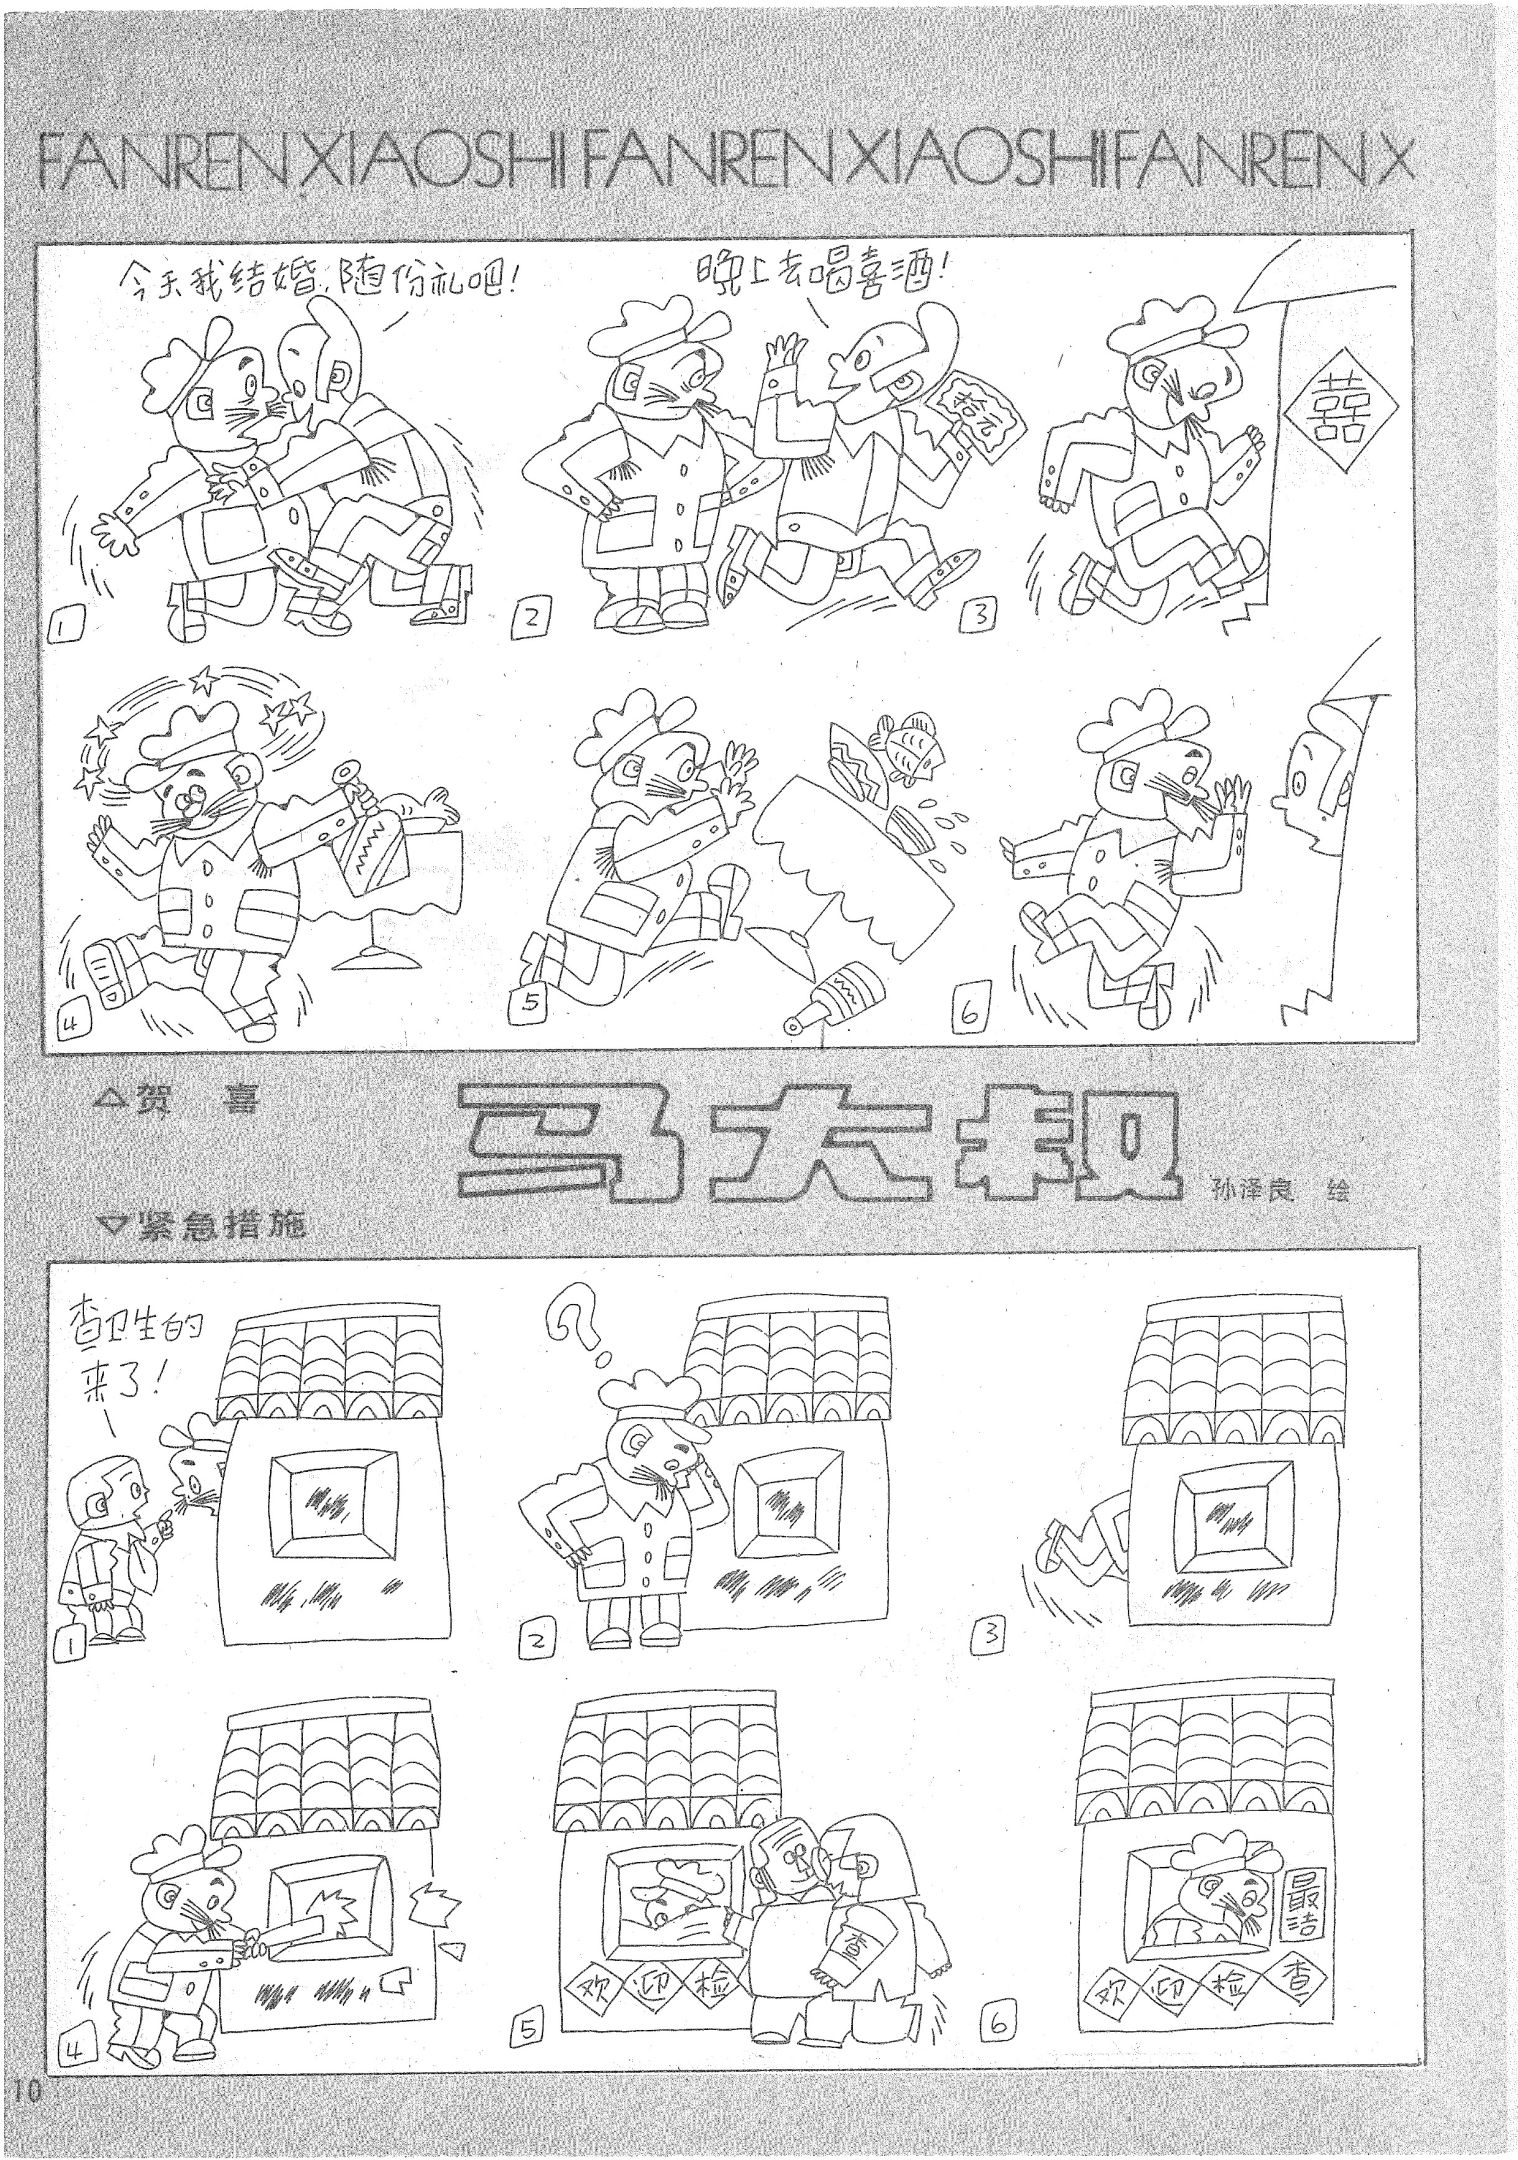 FANREN XIAOSHI FANREN XIAOSHI FANREN X
今天我结婚,随份礼吧!
晚上去喝喜酒!
拾元
囍
1
2
3
4
5
6
△贺 喜
马大叔
孙泽良 绘
▽紧急措施
查卫生的
来了!
?
1
2
3
4
查
欢迎检
5
最洁
欢迎检查
6
10